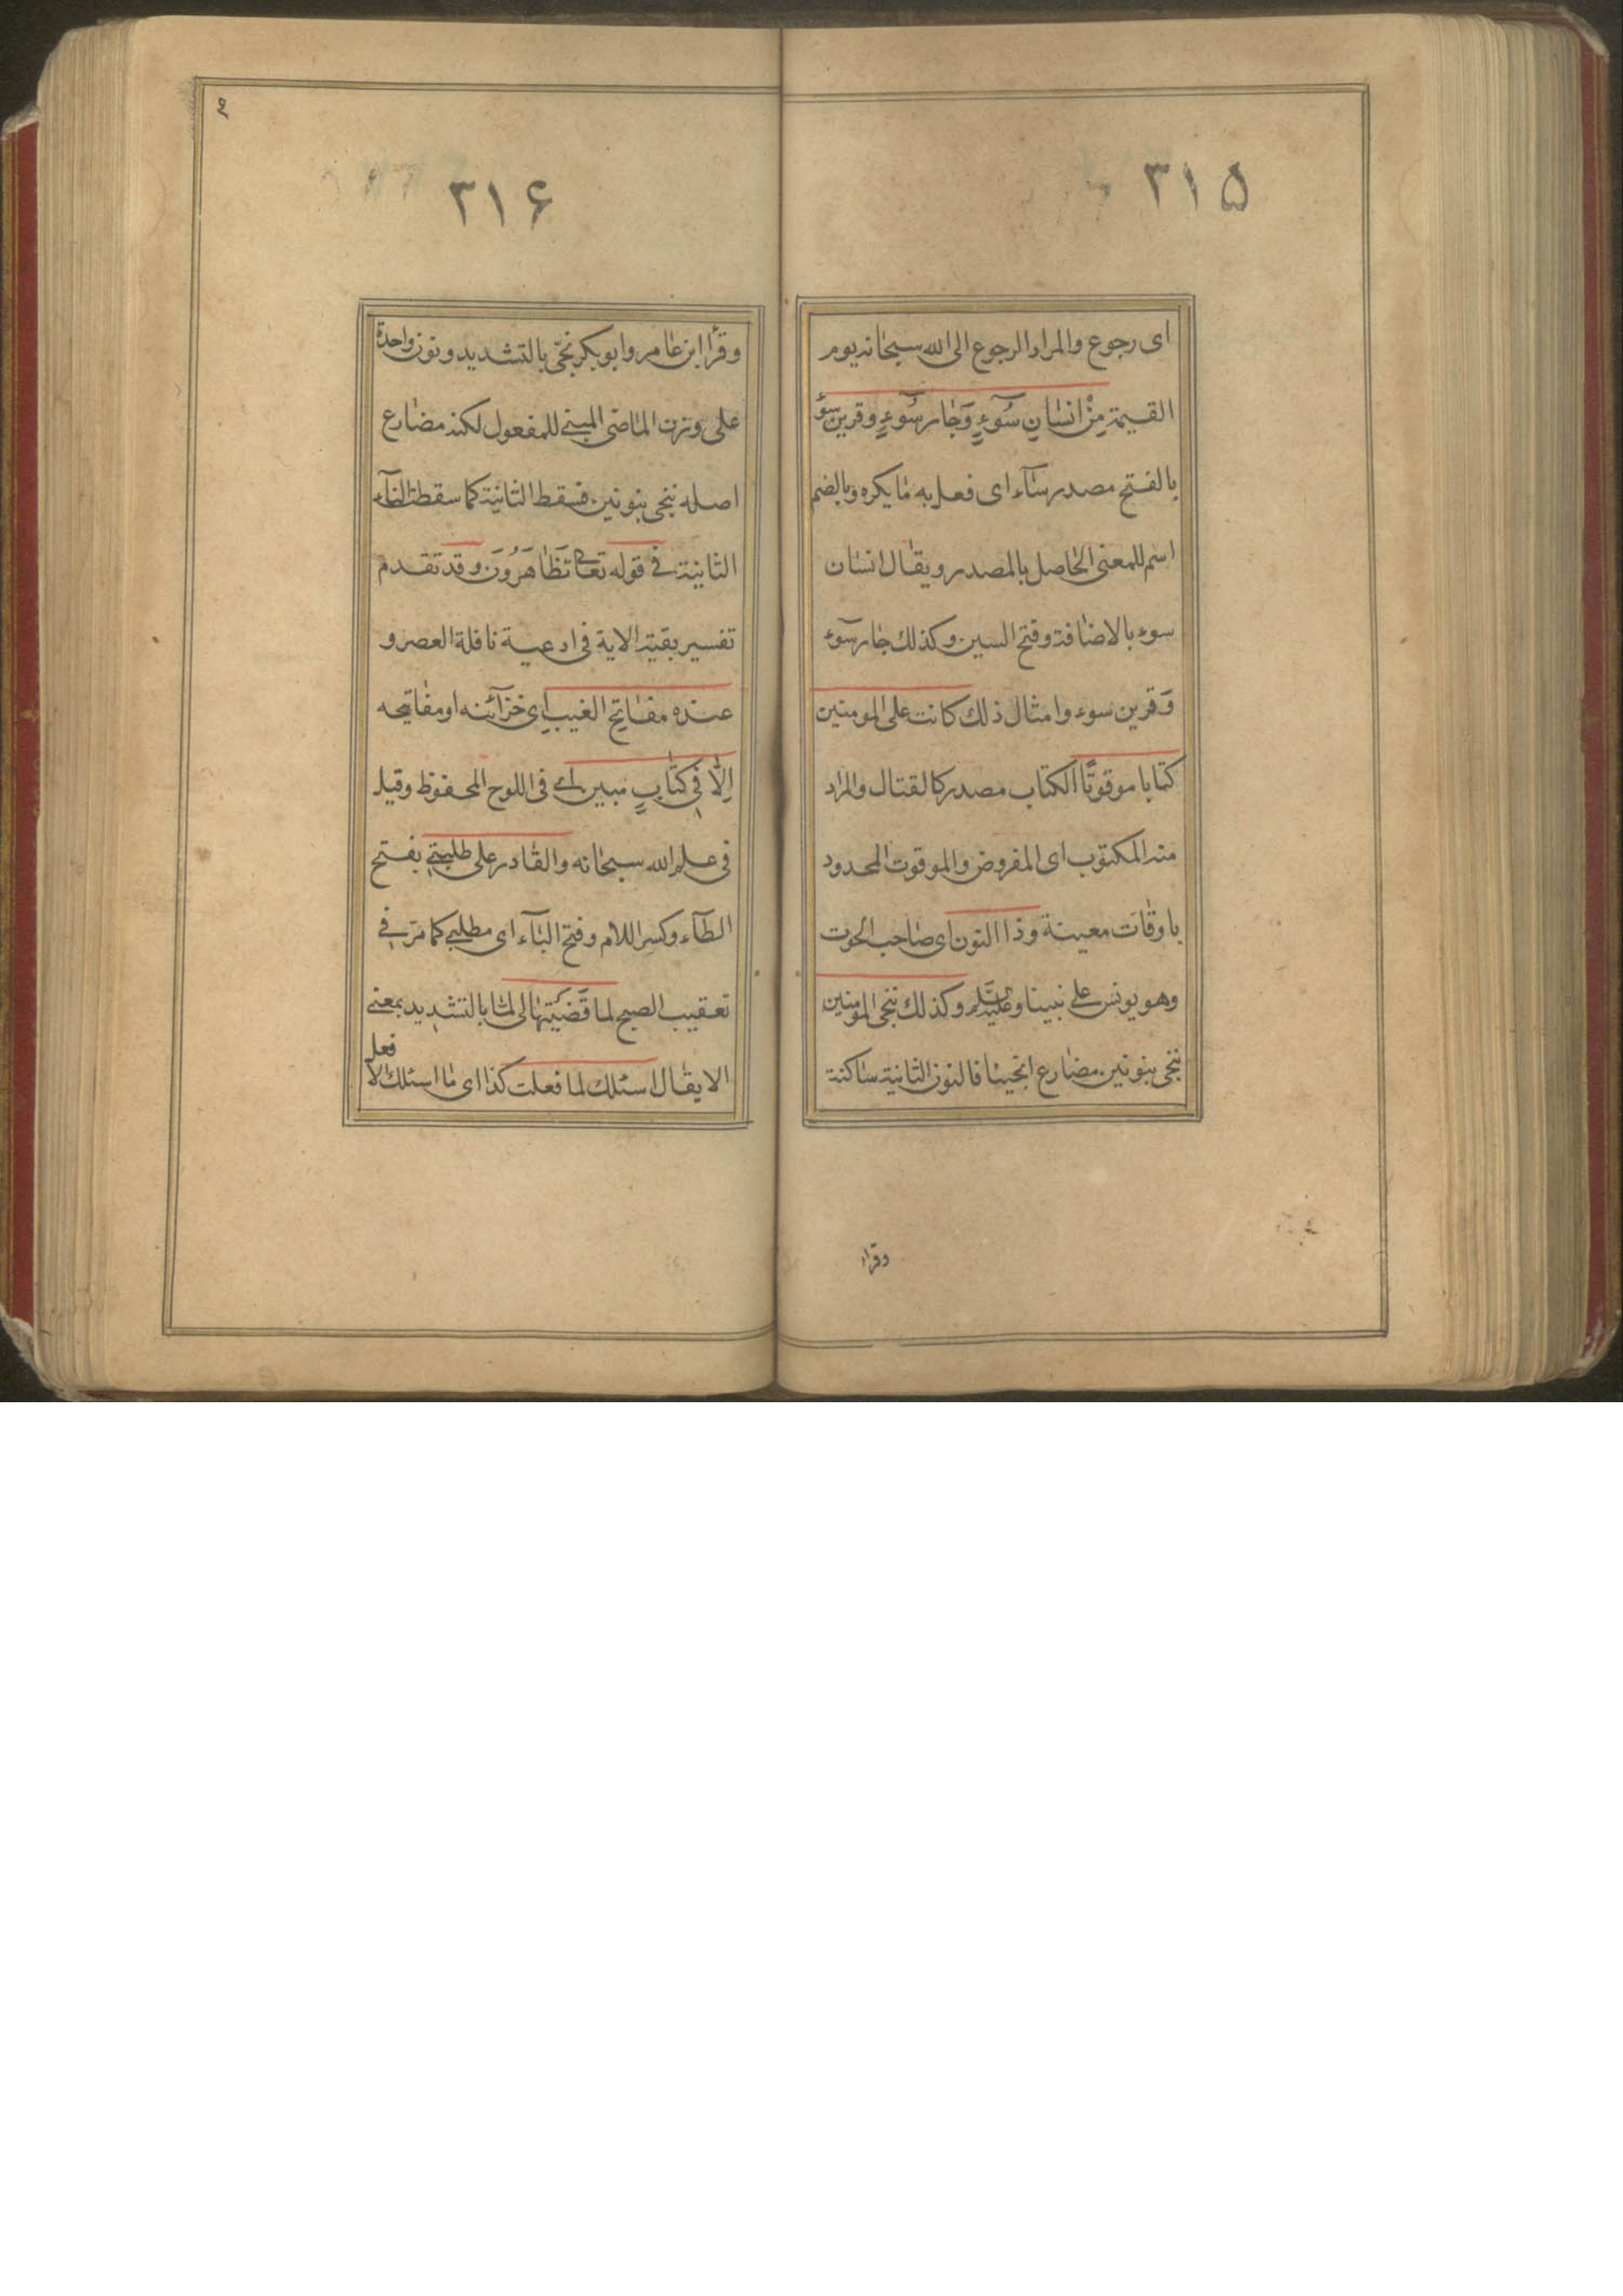 ۳۱۵
ای رجوع والمراد الرجوع الی الله سبحانه یوم
القیمة مِنْ انسٰانِ سُوٓءٍ وَجٰار سُوٓءٍ وقرین سوء
بالفتح مصدر سٰآء ای فعل به مٰا یکره وبالضم
اسم للمعنی الحٰاصل بالمصدر ویقٰال انسٰان
سوء بالاضٰافة وفتح السین وکذلك جٰار سوٓء
وَقرین سوء وامثال ذلك کانت علی المومنین
کتٰابا موقوتًا الکتاب مصدر کالقتال والمراد
منه المکتوب ای المفروض والموقوت المحدود
باوقٰات معینة وذا النون ای صٰاحب الحوت
وهو یونس علی نبینا وعلیه السلام وکذلك ننجی المومنین
ننجی بنونین مضٰارع انجینا فالنون الثانیة سٰاکنة
وقرأ
۲
۳۱۶
وقرأ ابن عٰامر وابو بکر نجّی بالتشدید ونون واحدة
علی وزن المٰاضی المبنی للمفعول لکنه مضٰارع
اصله ننجی بنونین فسقط الثانیة کما سقطة التآء
الثانیة فی قوله تعالی تَظٰاهَرُونَ وقد تقدم
تفسیر بقیة الایة فی ادعیة نافلة العصر و
عنده مفٰاتِح الغیب ای خزآئنه او مفٰاتیحه
اِلّٰا فِی کتٰابٍ مبین ای فی اللوح المحفوظ وقیل
فی علم الله سبحٰانه والقٰادر علی طلبتی بفتح
الطآء وکسر اللٰام وفتح البٰآء ای مطلبی کما مرّ فی
تعقیب الصبح لما قَضَیْتَهٰا لی لمّا بالتشدید بمعنی
الا یقٰال اسئلك لما فعلت کذا ای مٰا اسئلك الا
فعل